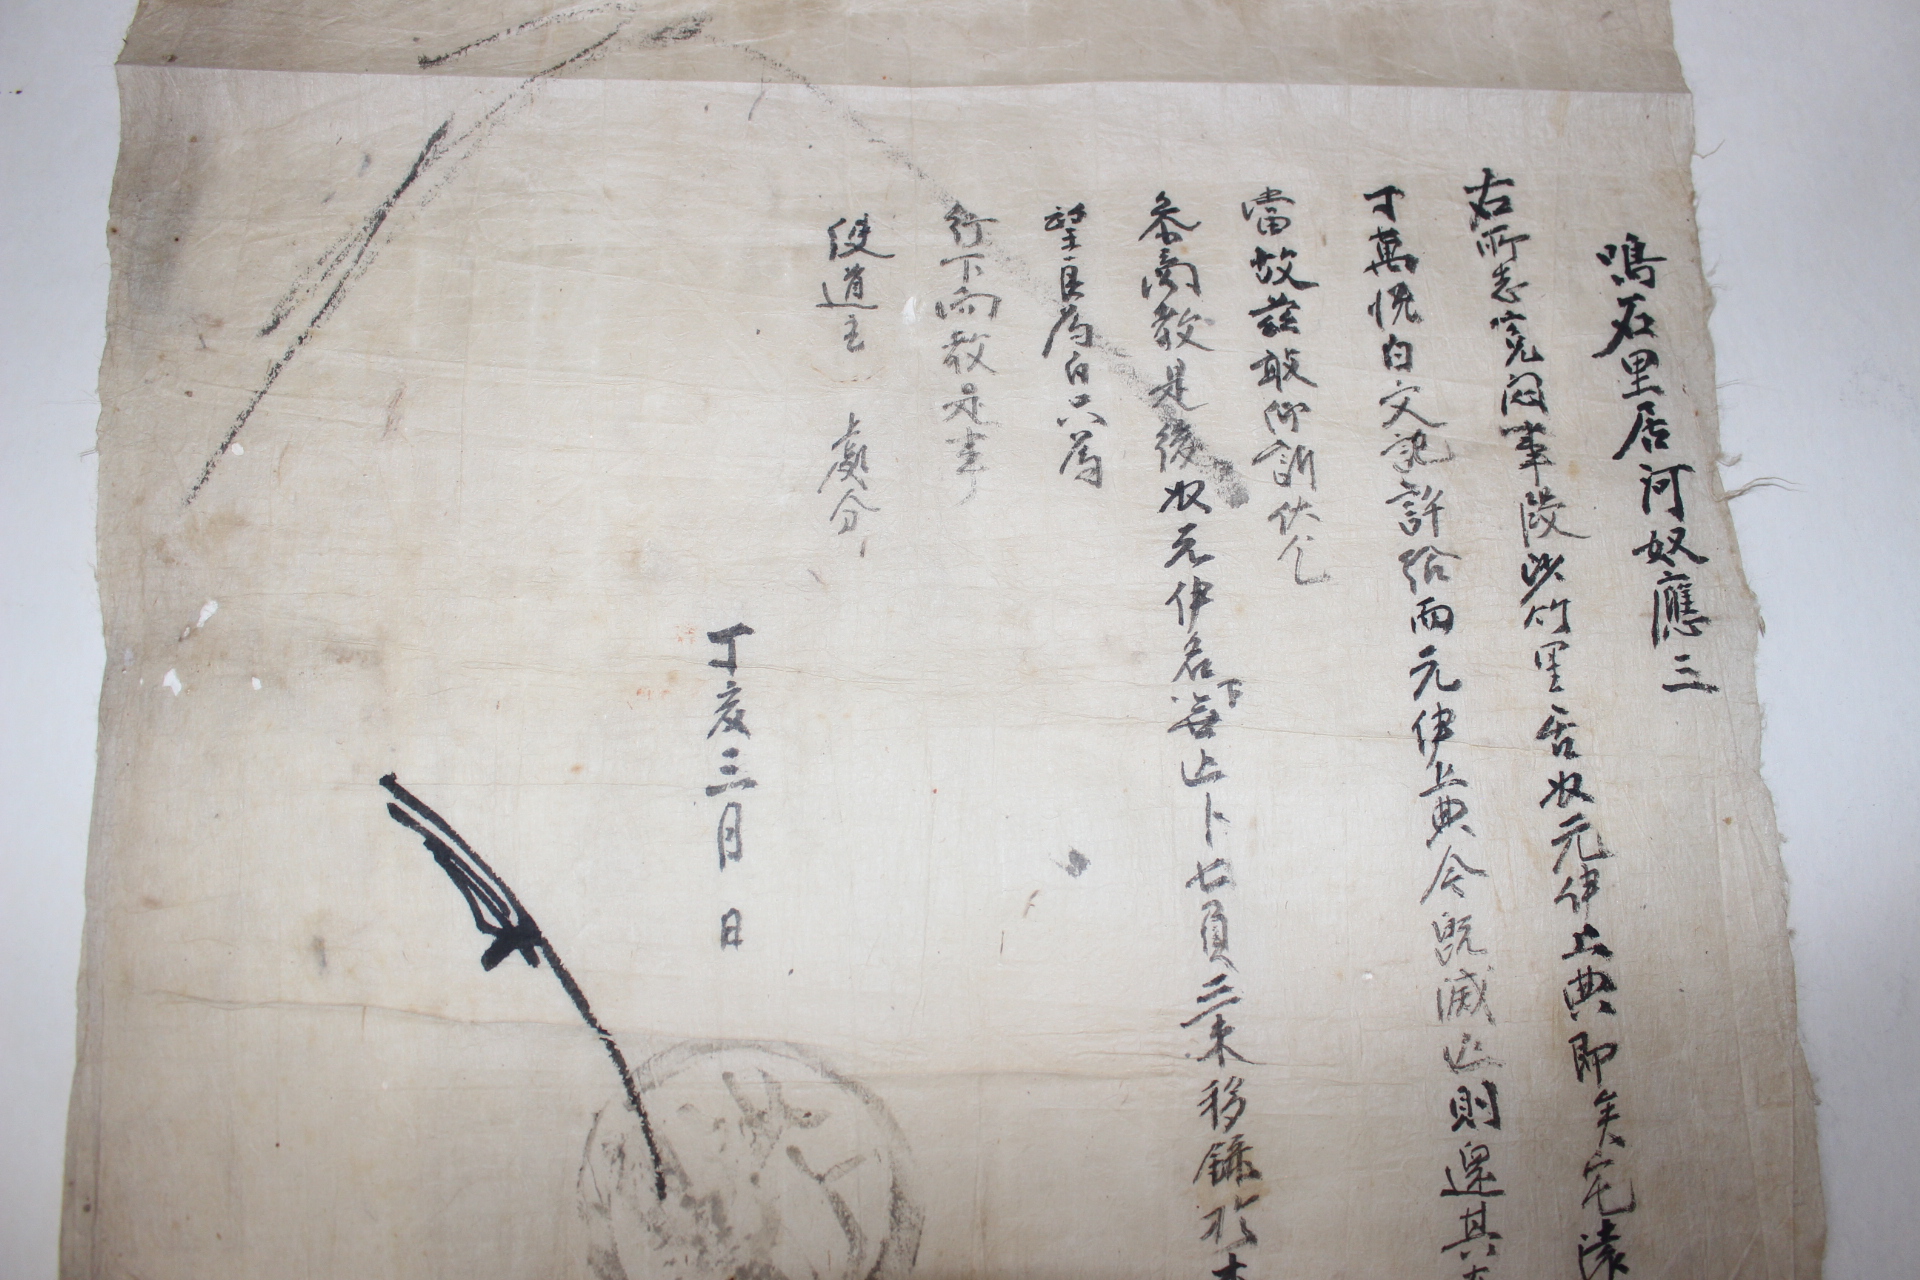 鳴石里居河奴應三
右所志寃悶事段 竹里居奴元伊上典即矣宅遠
丁萬悅白文記許給而元伊上典今旣滅 則還其
當故玆敢仰訴伏乞
參商敎是後奴元伊名下 卜七負三束移錄於本
望良爲白只爲
行下向敎是事
使道主 處分
丁亥三月 日